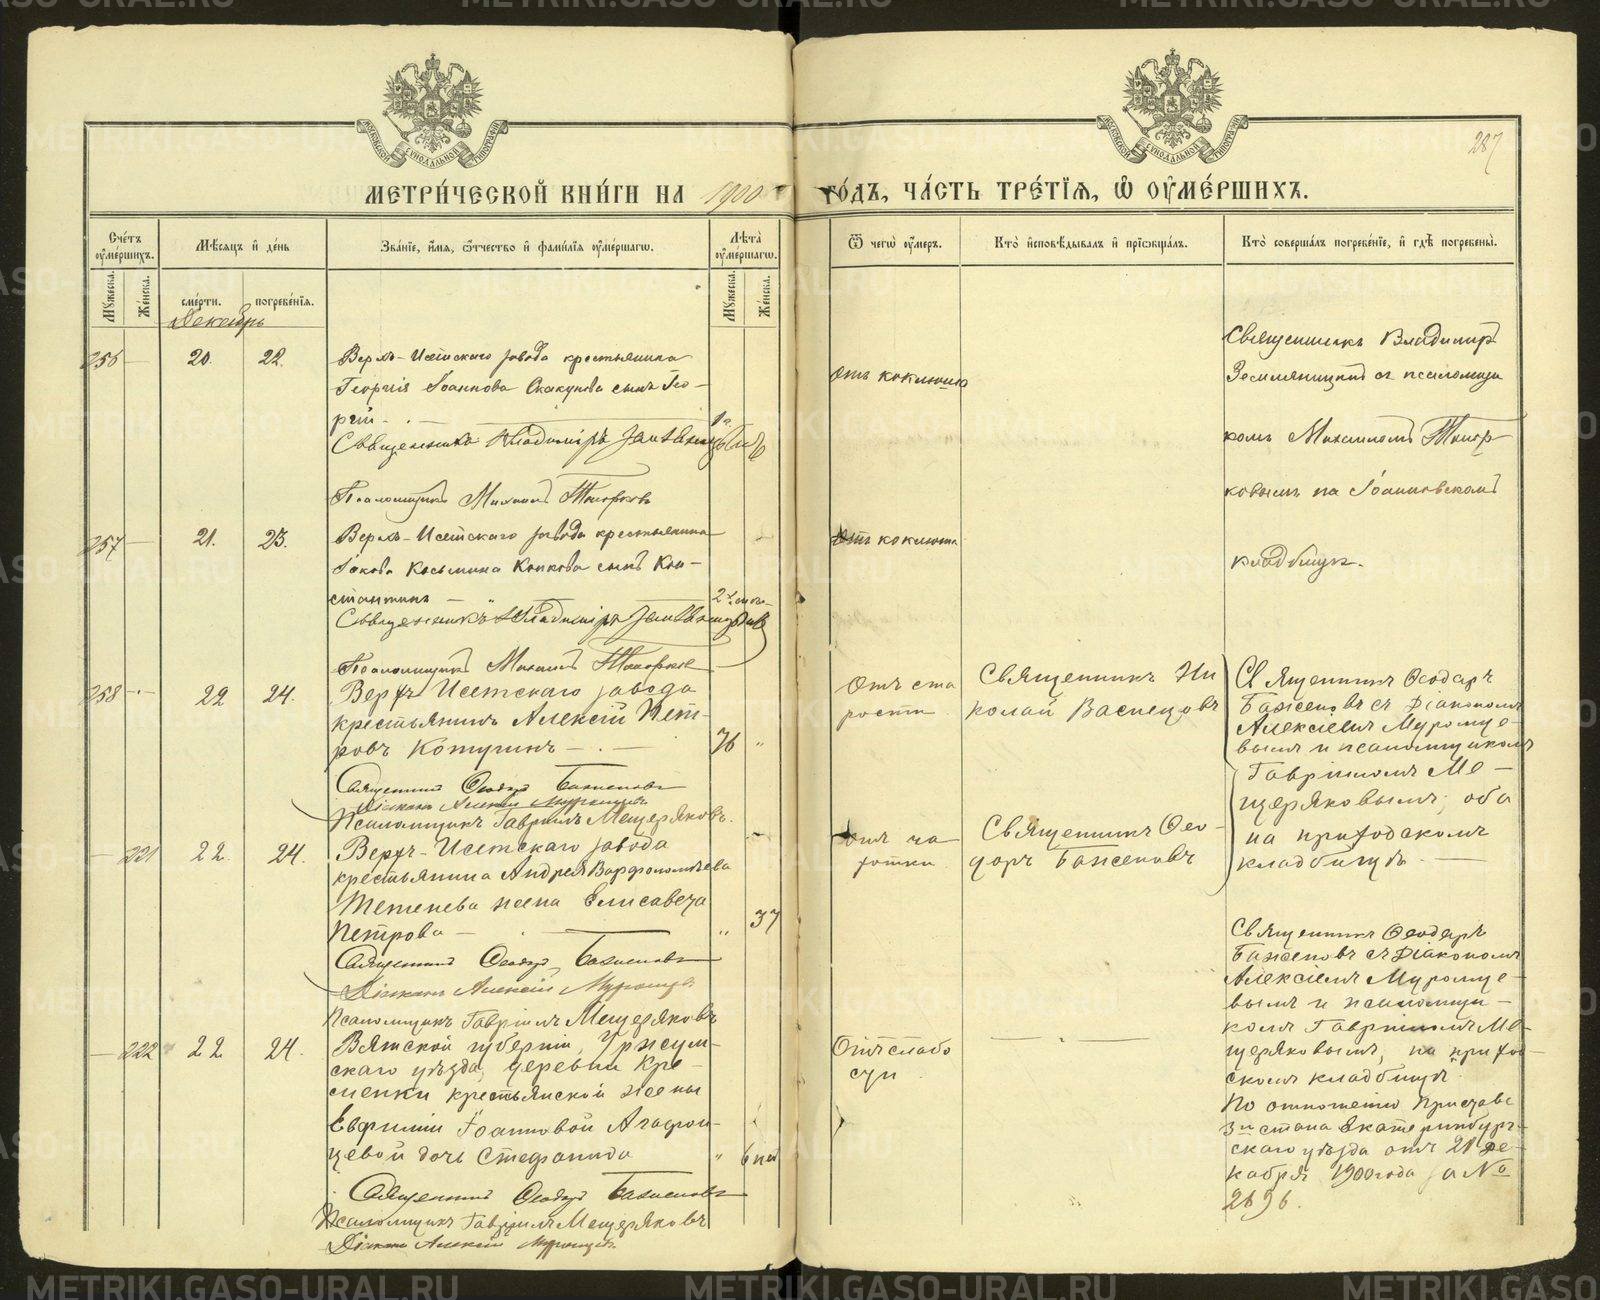 287
МЕТРИ́ЧЕСКОЙ КНИ́ГИ НА 1900 ГО́ДЪ, ЧА́СТЬ ТРЕ́ТІѦ, Ѡ҆ ОУ҆МЕ́РШИХЪ.
Сче́тъ оу҆ме́ршихъ.
Мѣ́сяцъ и҆ де́нь
Зва́нїе, и҆́мя, ѻ҆́тчество и҆ фами́лїя оу҆ме́ршагѡ.
Лѣта̀ оу҆ме́ршагѡ.
Ѿ чегѡ̀ оу҆́меръ.
Кто̀ и҆сповѣ́дывалъ и҆ прїѡбща́лъ.
Кто̀ соверша́лъ погребе́нїе, и҆ гдѣ̀ погребены̀.
Мꙋ́жеска.
Же́нска.
сме́рти.
погребе́нїя.
Мꙋ́жеска.
Же́нска.
Декабрь
256
20.
22.
Верхъ-Исетскаго завода крестьянина
Георгія Іоаннова Скакунова сынъ Гео-
ргій
Священникъ Владиміръ Земляницынъ
Псаломщикъ Михаилъ Топорковъ
Отъ коклюша
Священникъ Владиміръ
Земляницынъ съ псаломщи
комъ Михаиломъ Топор
ковымъ на Іоанновскомъ
кладбищѣ.
257
21.
23.
Верхъ-Исетскаго завода крестьянина
Іакова Косьмина Копкова сынъ Кон-
стантинъ
Священникъ Владиміръ Земляницынъ
Псаломщикъ Михаилъ Топорковъ
Отъ коклюша
258
22
24.
Верхъ Исетскаго завода
крестьянинъ Алексій Пет-
ровъ Котугинъ
76
Священникъ Ѳеодоръ Баженовъ
Діаконъ Алексій Муромцевъ
Псаломщикъ Гавріилъ Мещеряковъ.
Отъ ста
рости
Священникъ Ни
колай Васнецовъ
Священникъ Ѳеодоръ
Баженовъ съ Діакономъ
Алексіемъ Муромце-
вымъ и псаломщикомъ
Гавріиломъ Ме-
щеряковымъ, оба
на приходскомъ
кладбищѣ
221
22.
24.
Верхъ-Исетскаго завода
крестьянина Андрея Варфоломѣева
Тетенева жена Елисавета
Петрова
37
Священникъ Ѳеодоръ Баженовъ
Діаконъ Алексій Муромцевъ
Псаломщикъ Гавріилъ Мещеряковъ
отъ ча
хотки
Священникъ Ѳео-
доръ Баженовъ
222
22
24.
Вятской губерніи, Уржум-
скаго уѣзда, деревни Кре-
сненки крестьянской жены
Евфиміи Іоанновой Агафон-
цевой дочь Стефанида
6 нед
Священникъ Ѳеодоръ Баженовъ
Псаломщикъ Гавріилъ Мещеряковъ
Діаконъ Алексій Муромцевъ
Отъ слабо
сти
Священникъ Ѳеодоръ
Баженовъ съ Діакономъ
Алексіемъ Муромце-
вымъ и псаломщи-
комъ Гавріиломъ Ме-
щеряковымъ, на приход-
скомъ кладбищѣ.
По отношенію Пристава
3го стана Екатеринбург-
скаго уѣзда отъ 21 де-
кабря 1900 года за №
2696.
METRIKI.GASO-URAL.RU